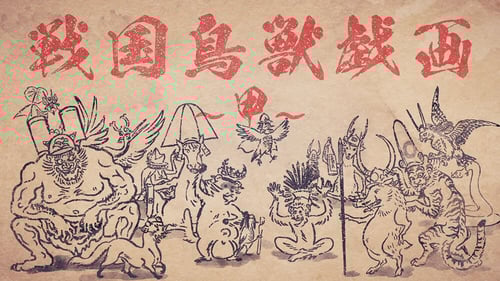 戦国鳥獣戯画
〜甲〜